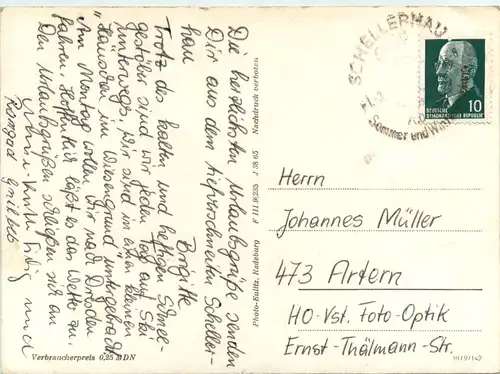 Die herzlichsten Urlaubsgrüße senden
Dir aus dem tiefverschneiten Scheller-
hau
Brigitte
Trotz des kalten und heftigen Schnee-
gestöber sind wir jeden Tag auf Ski
unterwegs. Wir sind in einem kleinen
Häuschen im Wiesengrund untergebracht.
Am Montag wollen wir nach Dresden
fahren. Hoffentlich läßt es das Wetter zu.
Den Urlaubsgrüßen schließen sich an
und
Verbraucherpreis 0,25 MDN
Photo-Kulitz, Radeburg F III 9/235 J 38 65 Nachdruck verboten
SCHELLERHAU
Sommer und
10
DEUTSCHE
DEMOKRATISCHE REPUBLIK
Herrn
Johannes Müller
473 Artern
HO-Vst. Foto-Optik
Ernst-Thälmann-Str.